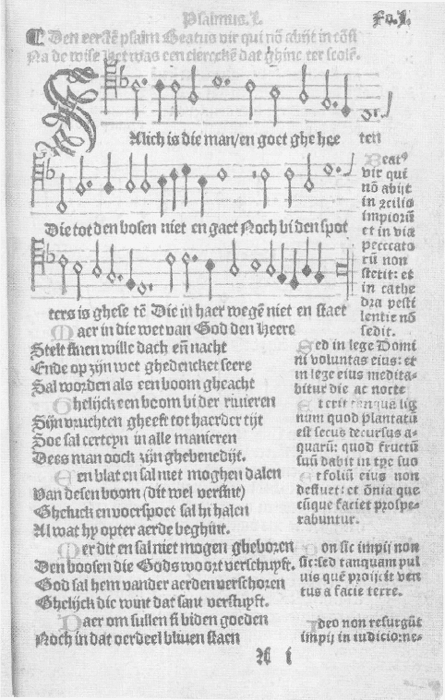 Psalmus. I.
Fo. I.
Den eersten psalm Beatus vir qui nō abijt in cōsi
Na de wise Het was een clerckē dat ghinc ter scolē.
Salich is die man/en goet ghe hee ten
Die tot den bosen niet en gaet Noch bi den spot
ters is ghese tē Die in haer wegē niet en staet
Maer in die wet van God den Heere
Stelt sinen wille dach eñ nacht
Ende op zijn wet ghedencket seere
Sal worden als een boom gheacht
Ghelijck een boom bi der riuieren
Sijn vruchten gheeft tot haerder tijt
Soe sal certeyn in alle manieren
Dees man oock zijn ghebenedijt.
Een blat en sal niet moghen dalen
Van desen boom (dit wel versint)
Gheluck en voerspoet sal hi halen
Al wat hy opter aerde beghint.
Mer dit en sal niet mogen gheboren
Den boosen die Gods woort verschupft.
God sal hem vander aerden verschoren
Ghelijck die wint dat sant verstupft.
Daer om sullen si biden goeden
Noch in dat oordeel bliuen staen
Beat⁹
vir qui
nō abijt
in cōsilio
impiorū
et in via
peccato
rū non
stetit: et
in cathe
dra pesti
lentie nō
sedit.
Sed in lege Domi
ni voluntas eius: et
in lege eius medita-
bitur die ac nocte
Et erit tanquā lig
num quod plantatū
est secus decursus a-
quarū: quod fructū
suū dabit in tpe suo
Et foliū eius non
defluet: et ōnia que
cūque faciet prospe-
rabuntur.
Non sic impij non
sic: sed tanquam pul
uis quē proijcit ven
tus a facie terre.
Ideo non resurgūt
impij in iudicio: ne-
A i